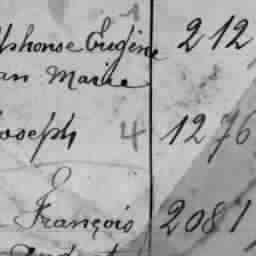 lphonse Eugène 212
an Marie
Joseph 4 1276
François 2081